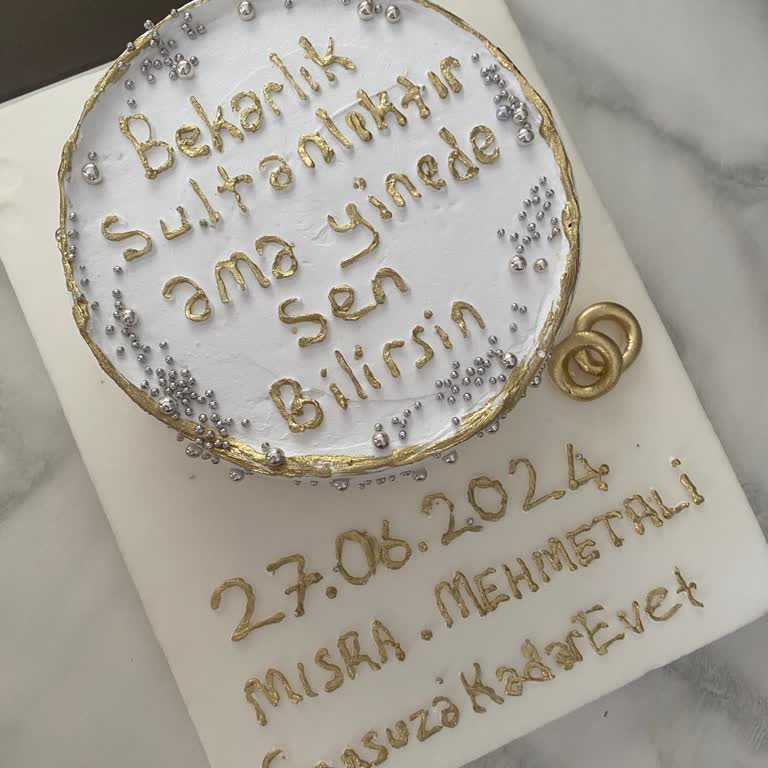 Bekarlık
sultanlıktır
ama yinede
Sen
Bilirsin
27.06.2024
MISRA . MEHMETALİ
Sonsuza Kadar Evet